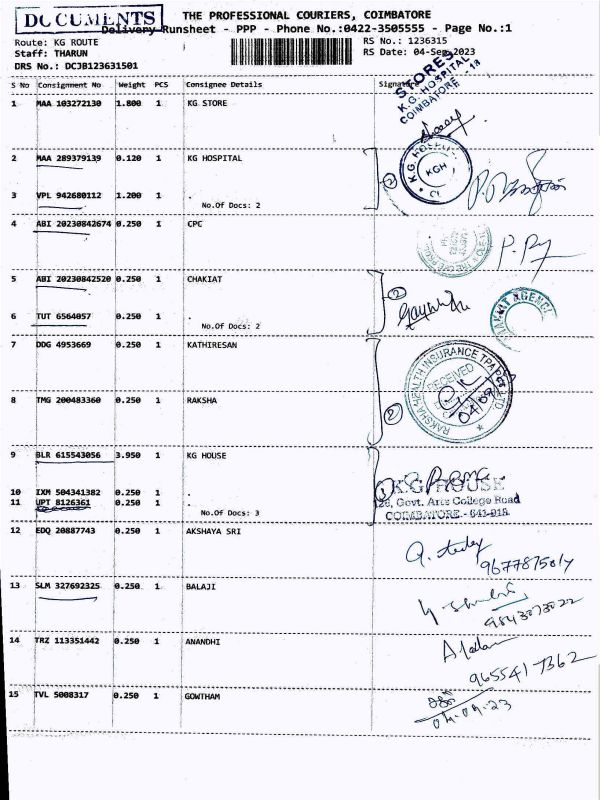 DOCUMENTS
THE PROFESSIONAL COURIERS, COIMBATORE
Delivery Runsheet - PPP - Phone No.:0422-3505555 - Page No.:1
Route: KG ROUTE
RS No.: 1236315
Staff: THARUN
RS Date: 04-Sep-2023
DRS No.: DCJB123631501
S No Consignment No Weight PCS Consignee Details Signature
STORES
K.G. HOSPITAL
COIMBATORE - 18
1 MAA 103272130 1.800 1 KG STORE
2 MAA 289379139 0.120 1 KG HOSPITAL
K.G. HOSPITAL
KGH
2
3 VPL 942680112 1.200 1 .
No.Of Docs: 2
4 ABI 20230842674 0.250 1 CPC
5 ABI 20230842520 0.250 1 CHAKIAT
2
6 TUT 6564057 0.250 1 .
No.Of Docs: 2
7 DDG 4953669 0.250 1 KATHIRESAN
RAKSHA HEALTH INSURANCE TPA PVT LTD
RECEIVED
8 TMG 200483360 0.250 1 RAKSHA
2
9 BLR 615543056 3.950 1 KG HOUSE
10 IXM 504341382 0.250 1 .
11 UPT 8126361 0.250 1 .
No.Of Docs: 3
K.G. HOUSE
Govt. Arts College Road
COIMBATORE - 641 018
12 EDQ 20887743 0.250 1 AKSHAYA SRI
13 SLM 327692325 0.250 1 BALAJI
14 TRZ 113351442 0.250 1 ANANDHI
15 TVL 5008317 0.250 1 GOWTHAM
04-09-23